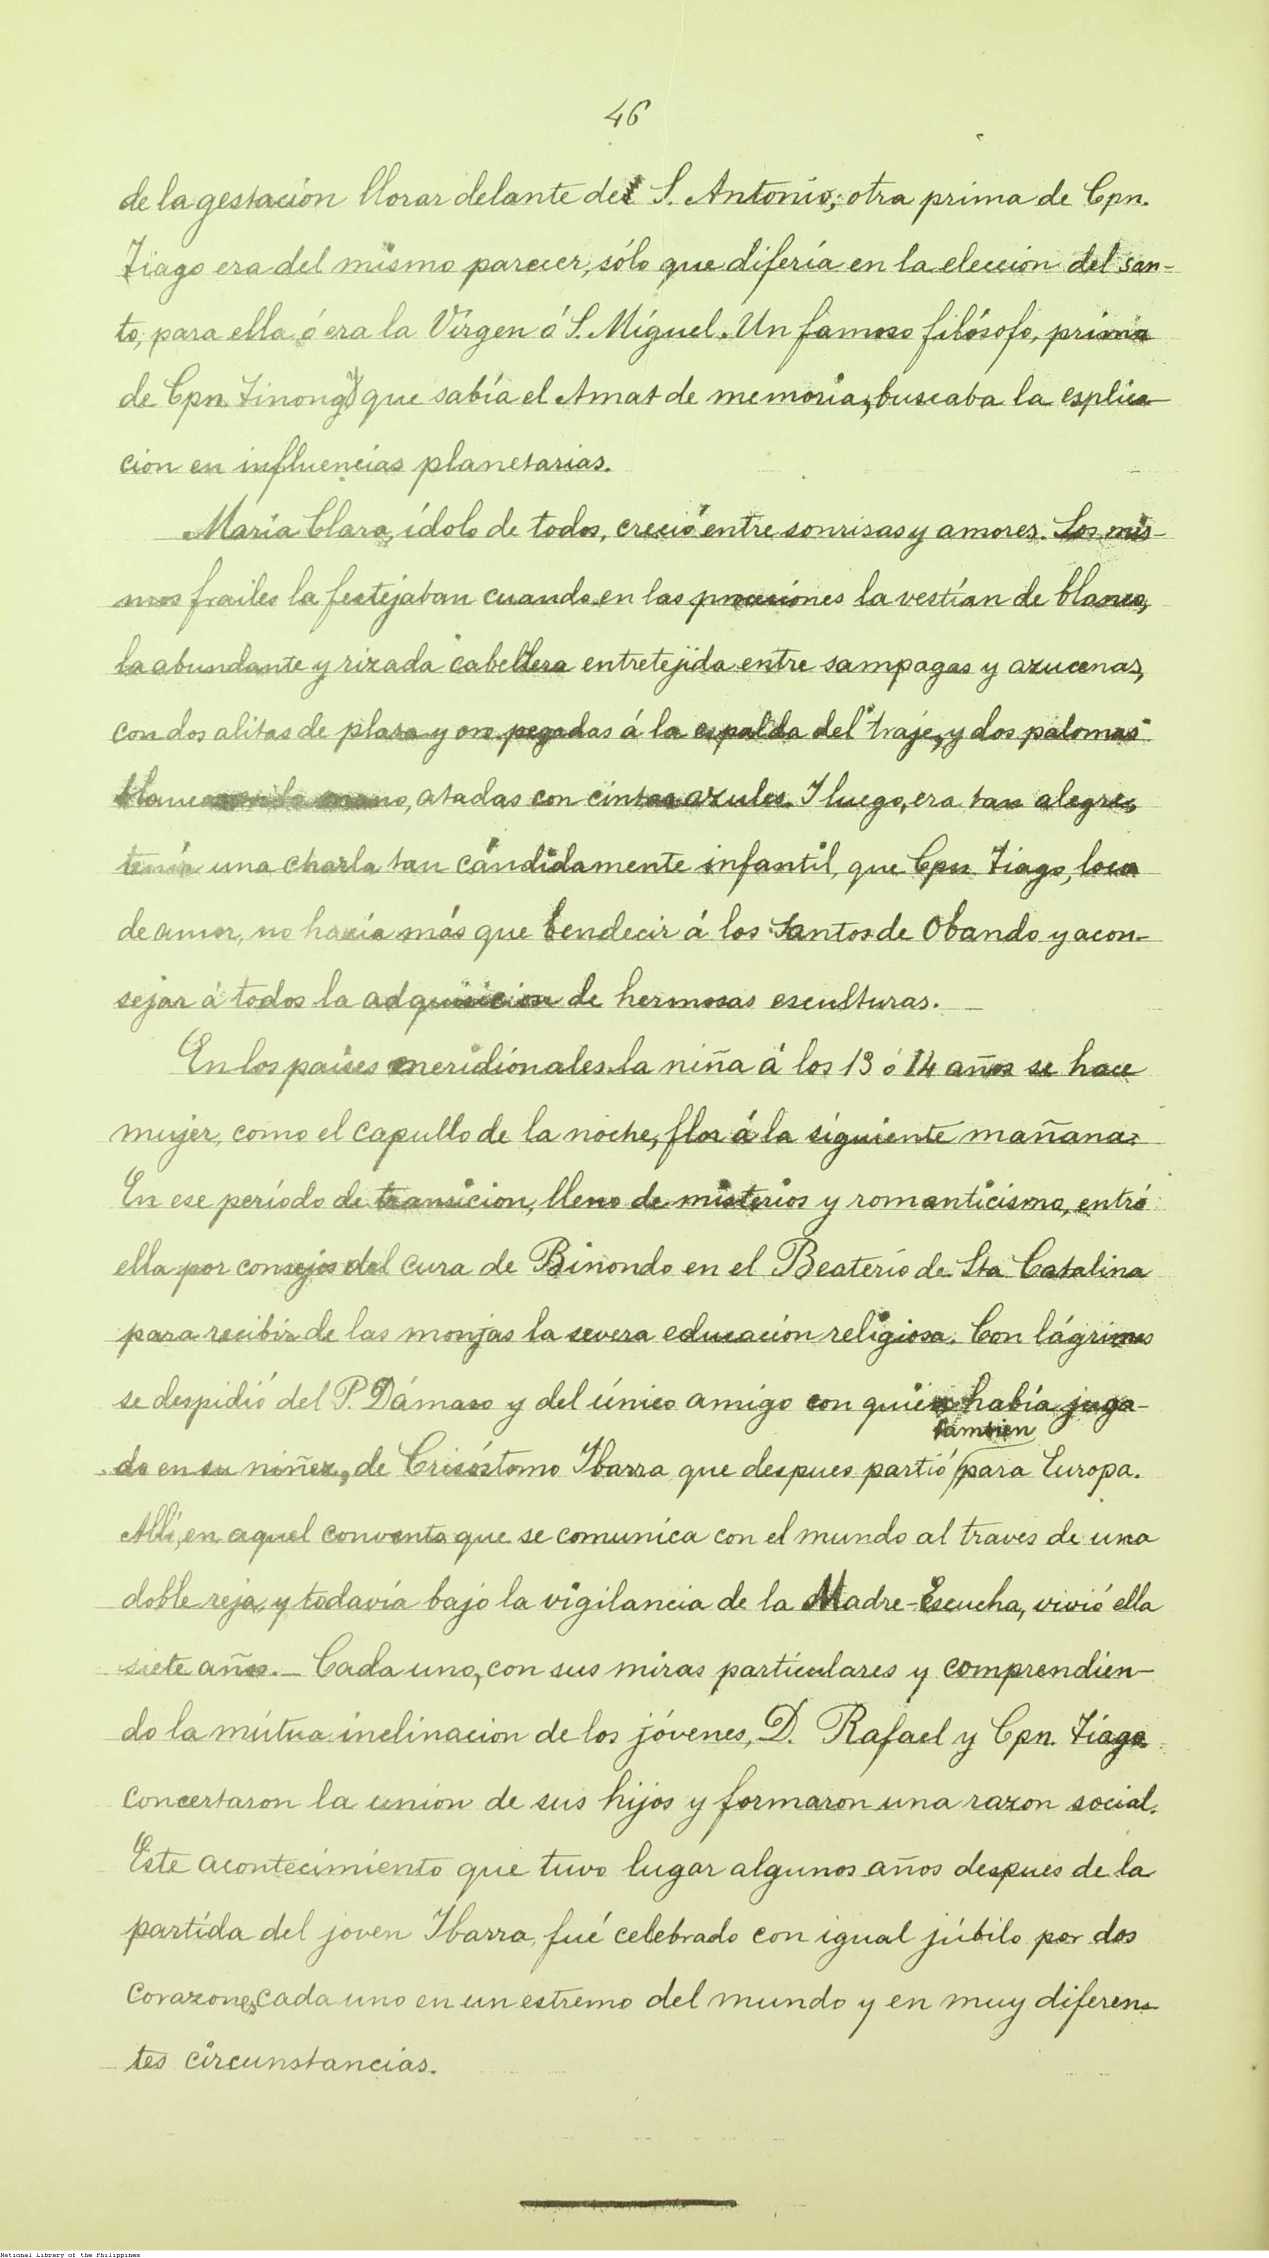 46
de la gestación llorar delante de S. Antonio; otra prima de Cpn.
Tiago era del mismo parecer, sólo que difería en la eleccion del san-
to, para ella ó era la Vírgen ó S. Míguel. Un famoso filósofo, primo
de Cpn Tinong, que sabía el Amat de memoria, buscaba la esplica-
cion en influencias planetarias.
María Clara, ídolo de todos, creció entre sonrisas y amores. Los mis-
mos frailes la festejaban cuando en las procesiones la vestían de blanco,
la abundante y rizada cabellera entretejida entre sampagas y azucenas,
con dos alitas de plata y oro pegadas á la espalda del traje, y dos palomas
blancas en la mano, atadas con cintas azules. I luego, era tan alegre,
tenía una charla tan cándidamente infantil, que Cpn Tiago, loco
de amor, no hacía más que bendecir á los Santos de Obando y acon-
sejar á todos la adquisicion de hermosas esculturas.
En los países meridionales la niña á los 13 ó 14 años se hace
mujer, como el capullo de la noche, flor á la siguiente mañana.
En ese período de transicion, lleno de misterios y romanticismo, entró
ella por consejos del cura de Binondo en el Beaterio de Sta Catalina
para recibir de las monjas la severa educación religiosa. Con lágrimas
se despidió del P. Dámaso y del único amigo con quien había juga-
tambien
do en su niñez, de Crisóstomo Ibarra que despues partió para Europa.
Allí, en aquel convento que se comunica con el mundo al traves de una
doble reja, y todavía bajo la vigilancia de la Madre-Escucha, vivió ella
siete años. — Cada uno, con sus miras particulares y comprendien-
do la mútua inclinacion de los jóvenes, D. Rafael y Cpn. Tiago
concertaron la union de sus hijos y formaron una razon social.
Este acontecimiento que tuvo lugar algunos años despues de la
partida del joven Ibarra, fué celebrado con igual júbilo por dos
corazones, cada uno en un estremo del mundo y en muy diferen-
tes circunstancias.
National Library of the Philippines